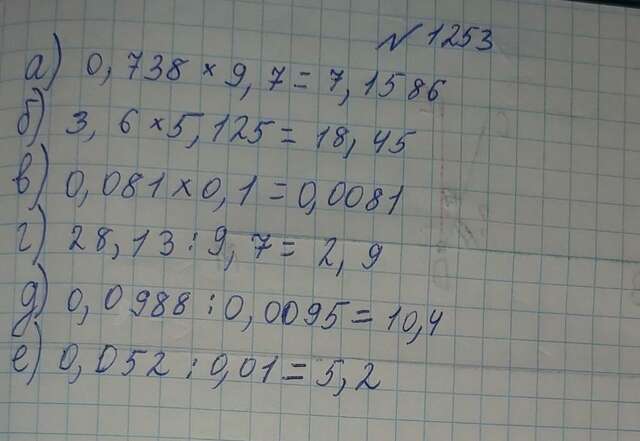 № 1253
а) 0,738 × 9,7 = 7,1586
б) 3,6 × 5,125 = 18,45
в) 0,081 × 0,1 = 0,0081
г) 28,13 : 9,7 = 2,9
д) 0,0988 : 0,0095 = 10,4
е) 0,052 : 0,01 = 5,2